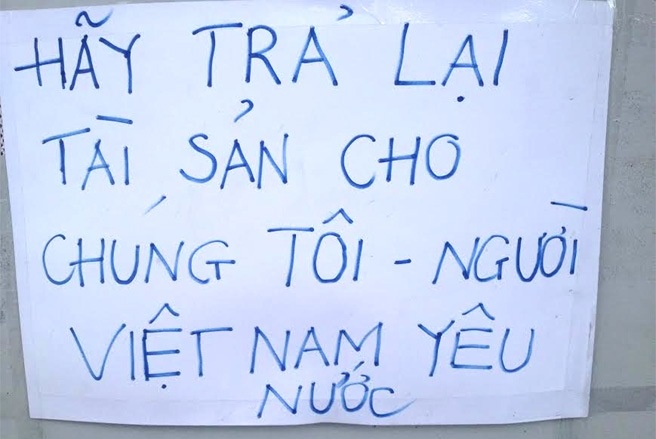 HÃY TRẢ LẠI
TÀI SẢN CHO
CHÚNG TÔI - NGƯỜI
VIỆT NAM YÊU
NƯỚC